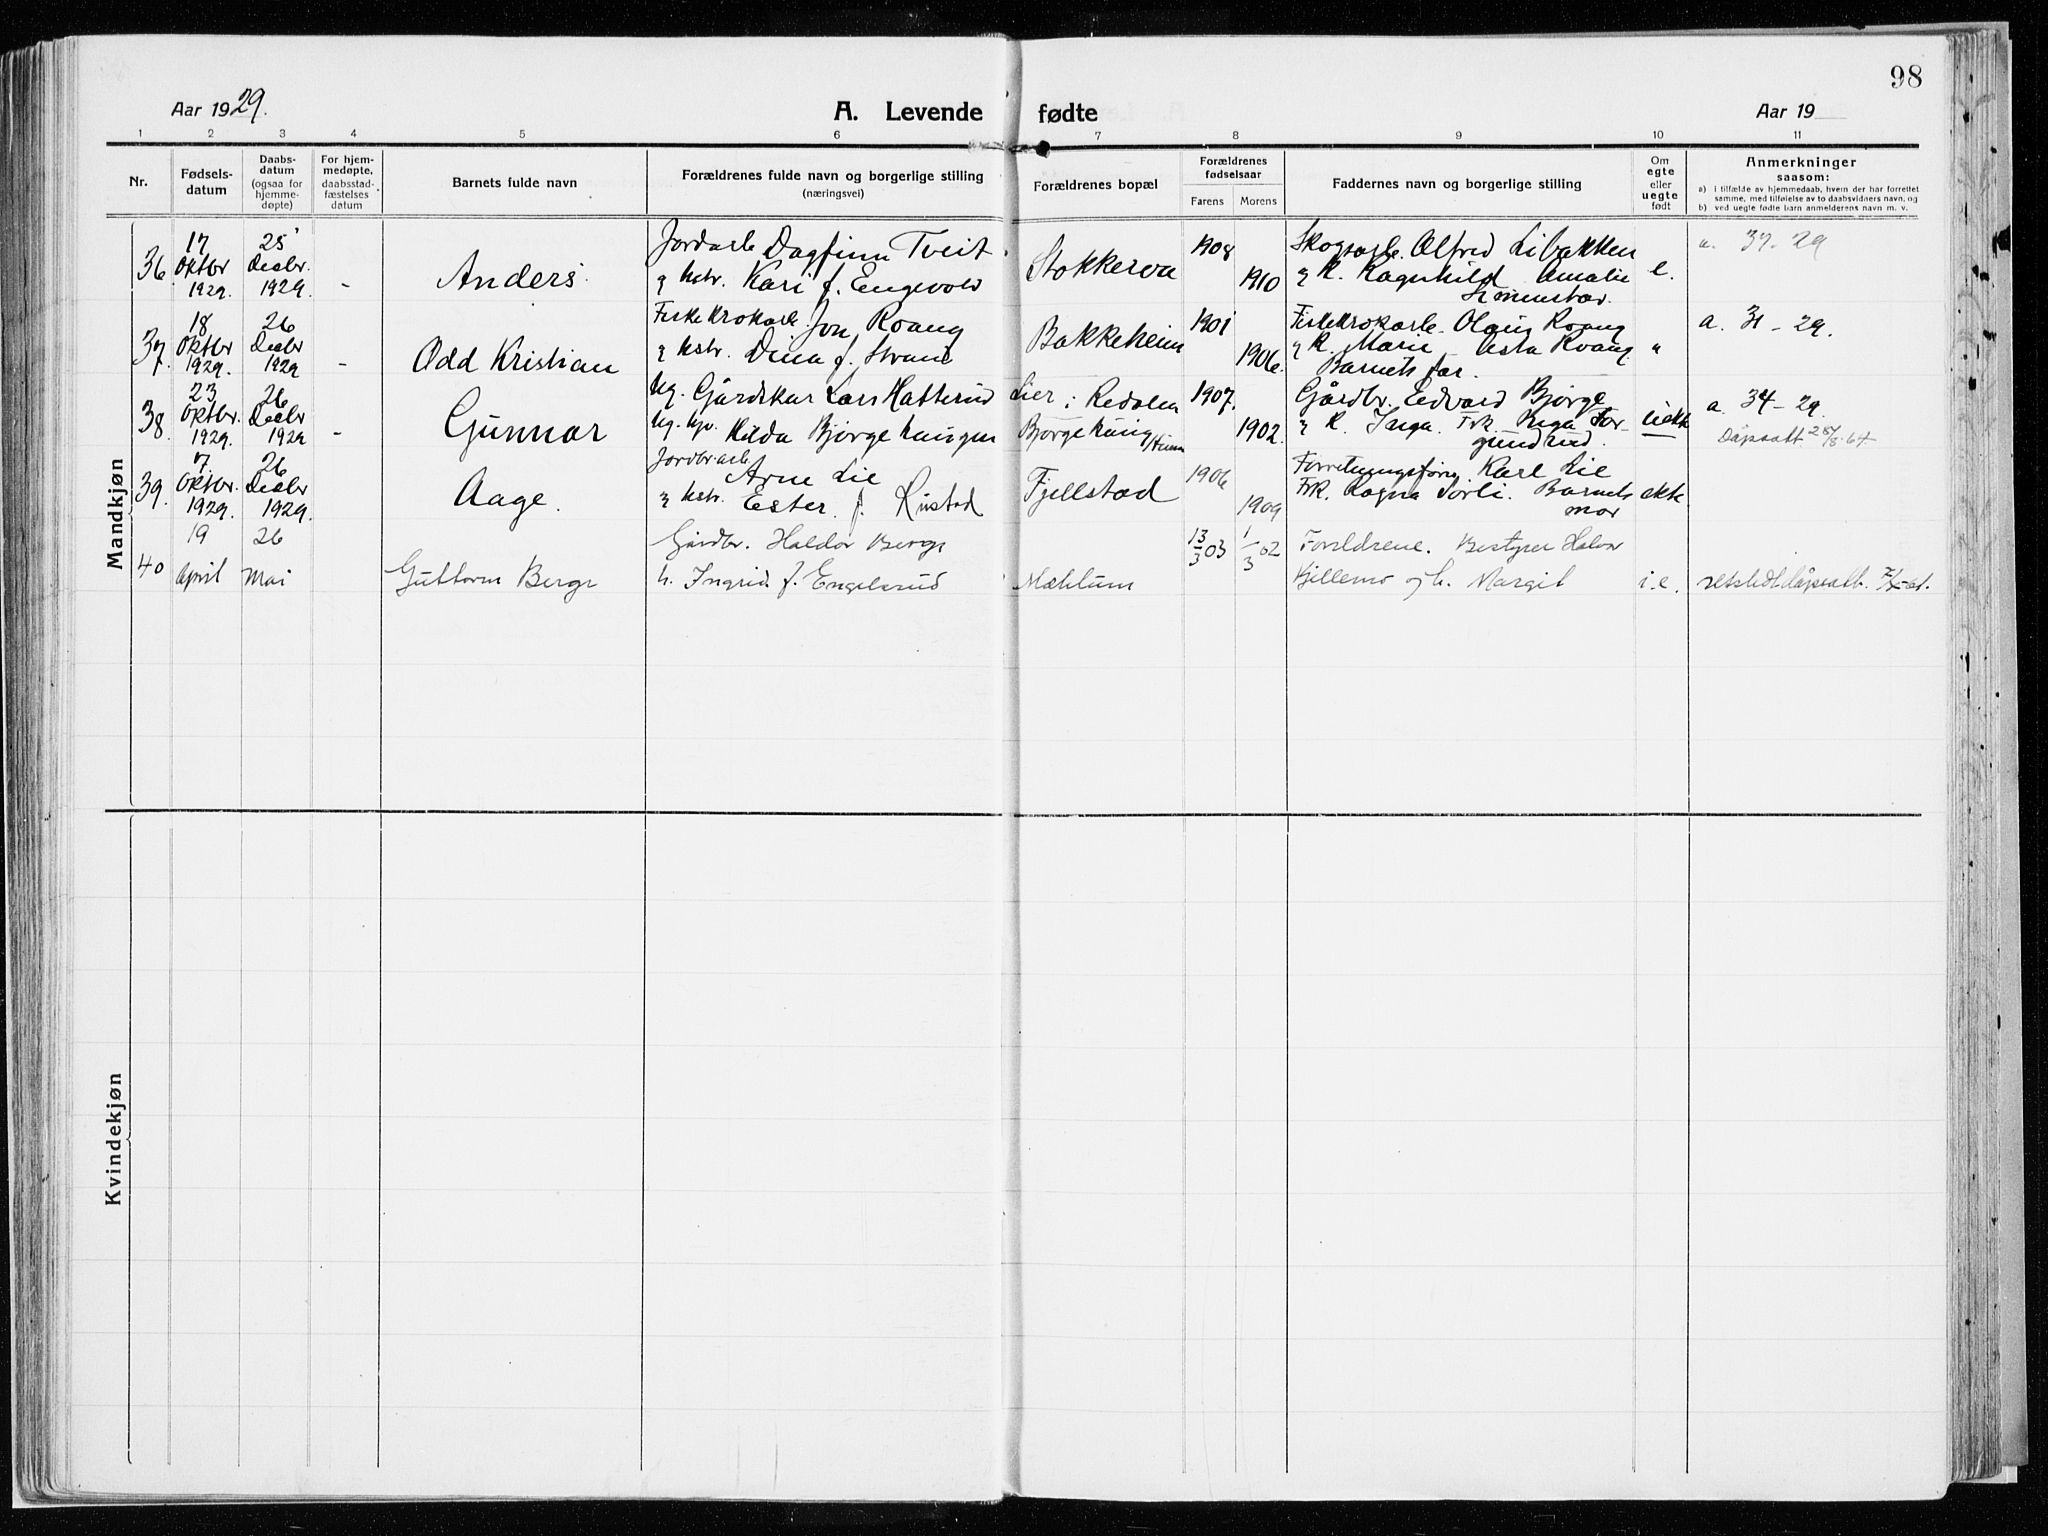 98
Aar 1929.
A. Levende fødte
Aar 19
1 2 3 4 5 6 7 8 9 10 11
Nr.
Fødsels-
datum
Daabs-
datum
(ogsaa for
hjemme-
døpte)
For hjem-
medøpte,
daabsstad-
fæstelses
datum
Barnets fulde navn
Forældrenes fulde navn og borgerlige stilling
(næringsvei)
Forældrenes bopæl
Forældrenes
fødselsaar
Farens Morens
Faddernes navn og borgerlige stilling
Om
egte
eller
uegte
født
Anmerkninger
saasom:
a) i tilfælde av hjemmedaab, hvem der har forrettet
samme, med tilføielse av to daabsvidners navn, og
b) ved uegte fødte barn anmelderens navn m. v.
Mandkjøn
36
17 Oktbr 1929.
25 Desbr. 1929.
-
Anders
Jordarb Dagfinn Tveit
& hstr. Kari f. Engevold
Stokkerva
1908
1910
Skogsarb. Alfred Libakken
& K. Ragnhild Amalie
Simenstad.
e.
a. 37-29
37.
18 Oktbr 1929.
26 Desbr 1929
-
Odd Kristian
Fiskekrokarb. Jon Roang
& hstr. Dina f. Strand
Bakkeheim
1901
1906.
Fiskekrokarb. Olaug Roang
& K. Marie Asta Roang
Barnets far.
"
a. 31-29.
38.
23 Oktbr. 1929.
26 Desbr 1929
-
Gunnar
Ug. Gårdskar Lars Hatterud
Ug. Kjv. Hilda Bjørgehaugen
Lier i Redalen
Bjørgehaug
1907.
1902.
Gårdbr. Edvard Bjørge
& K. Inga. Frk. Inga Tor-
gundrud.
uekte
a. 34-29.
Dåpsatt 28/8-64
39.
7. Oktbr. 1929.
26 Desbr 1929.
Aage.
Jordbr.arb
Arne Lie
& hstr. Ester f. Rustad
Fjellstad
1906
1909
Forretningsfører Karl Lie
Frk. Ragna Sørli. Barnets
mor
ekte
40
19 April
26 Mai
Guttorm Berge
Gårdbr. Haldor Berge
h. Ingrid f. Engelsrud
Mæhlum
13/3 03
1/3 02
Foreldrene. Bestyrer Halvor
Kjellemo og h. Margit
i.e.
Kvindekjøn